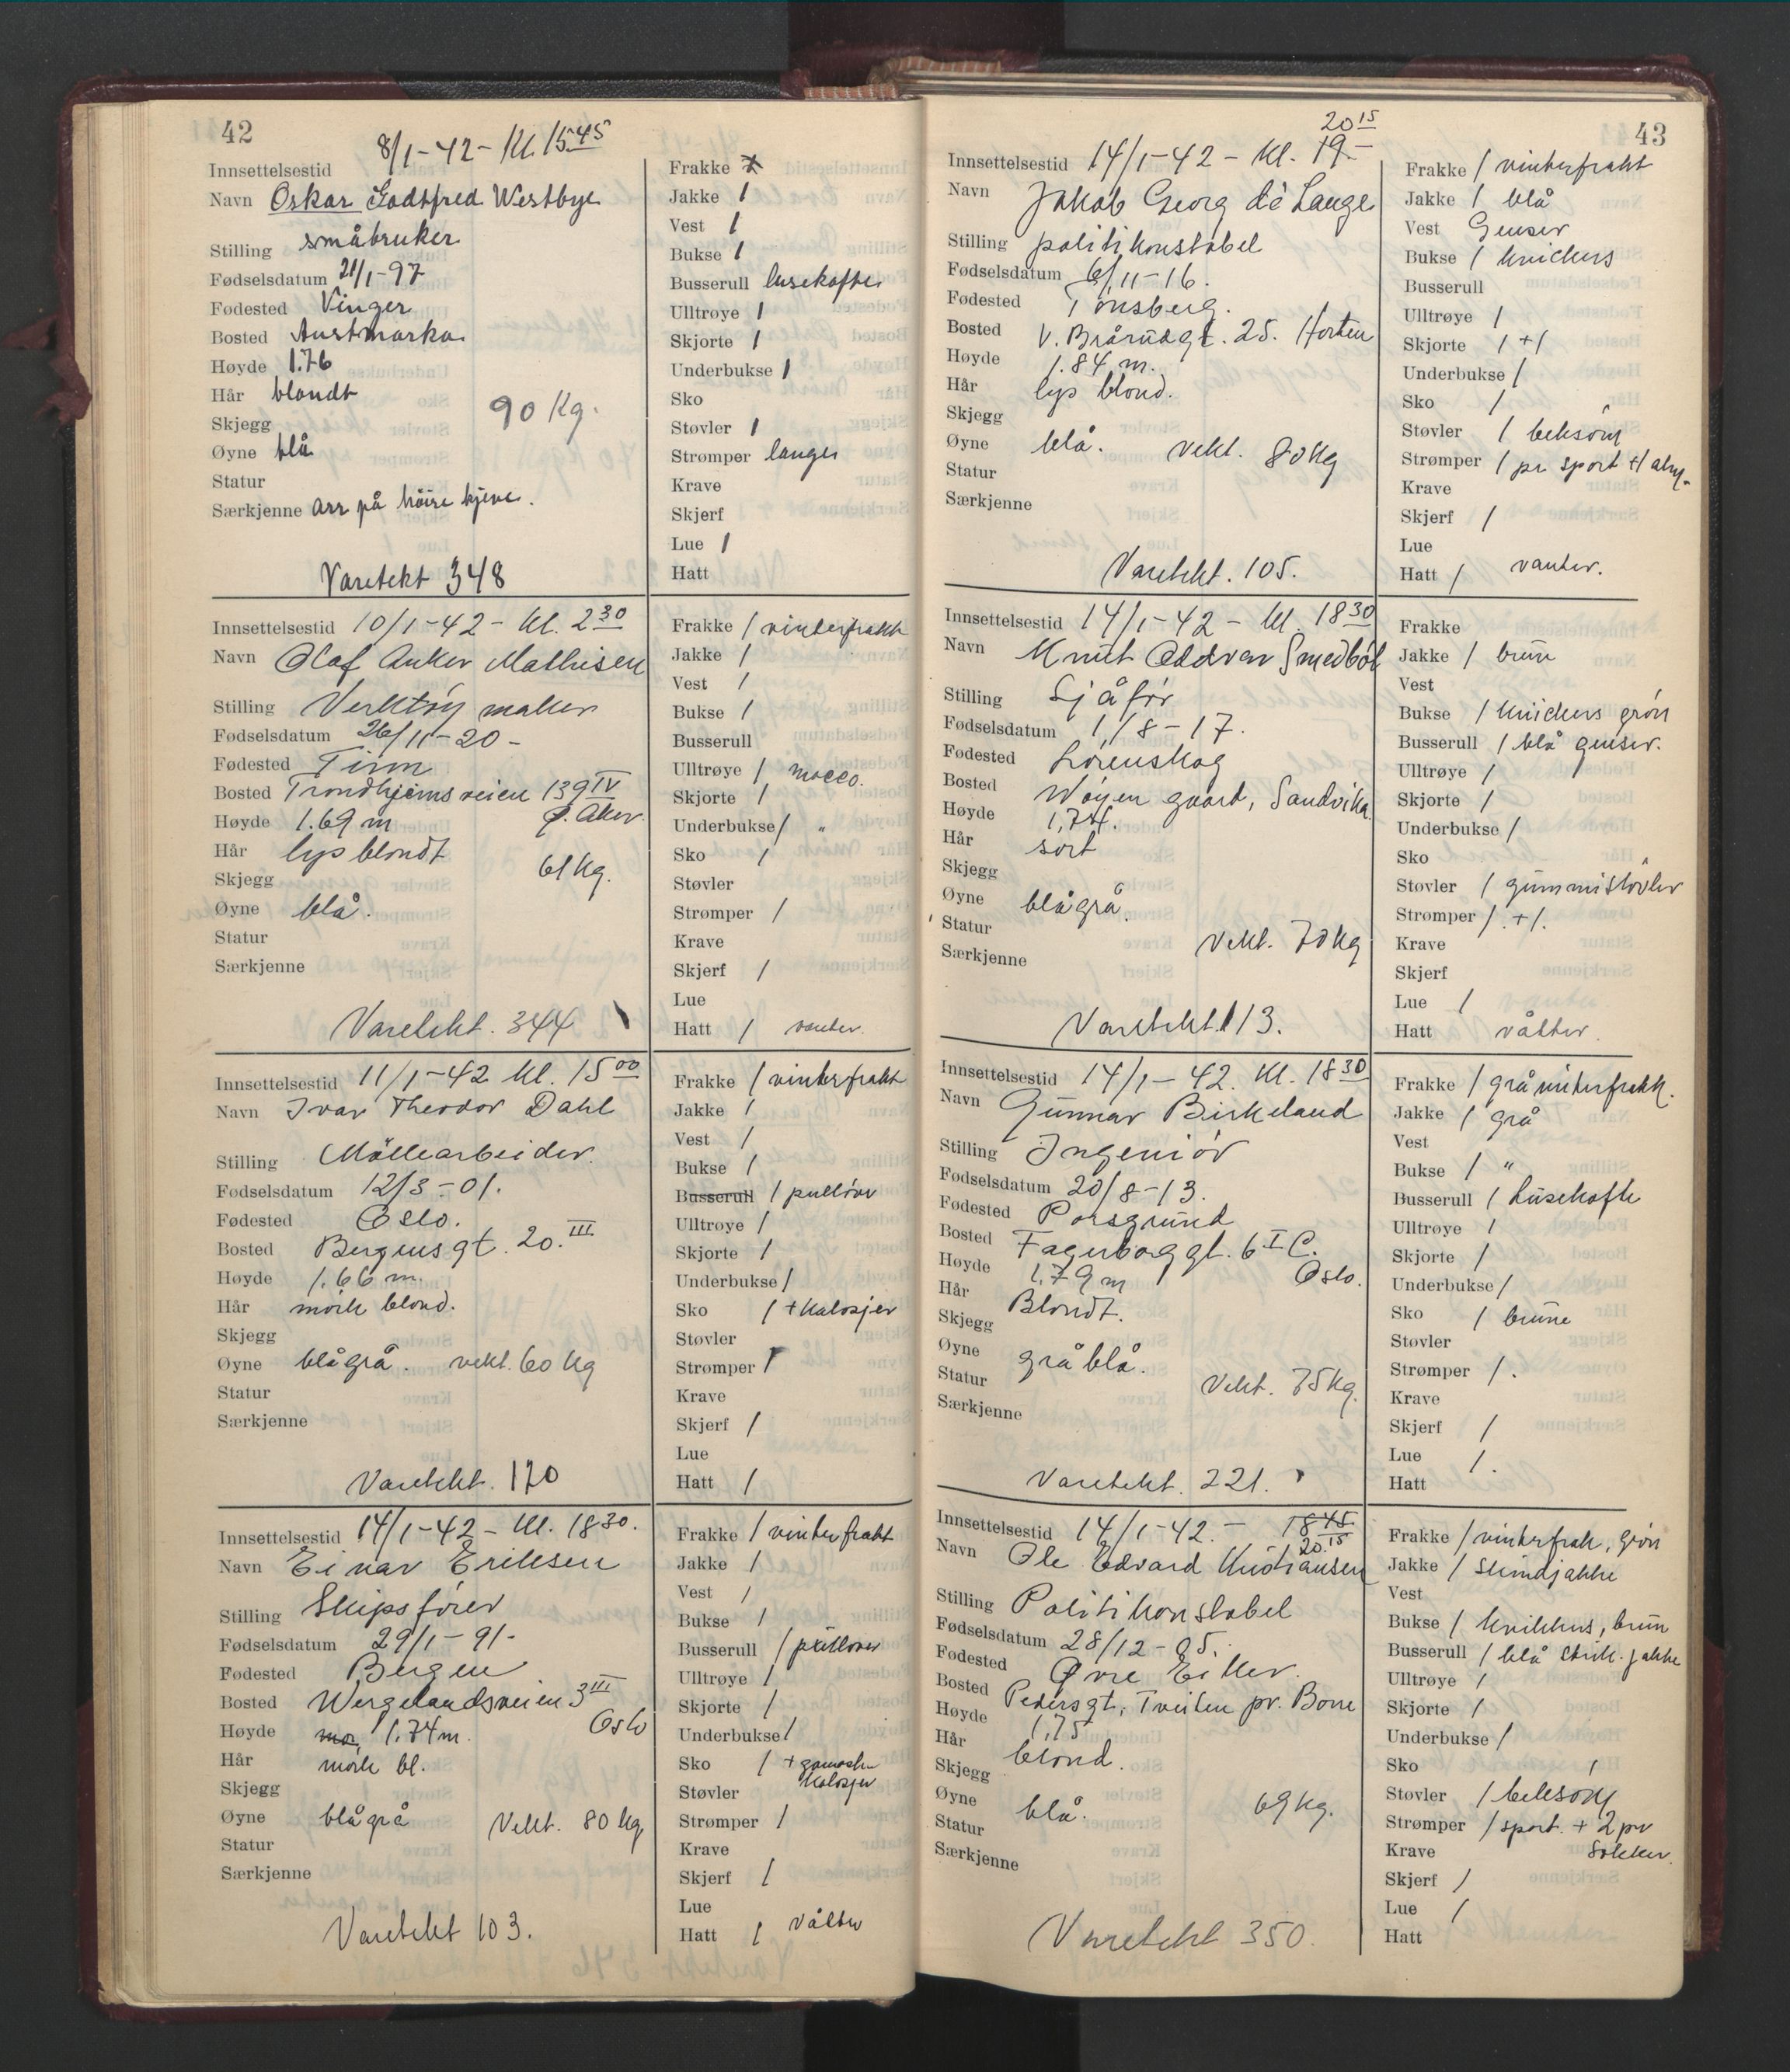 42
Innsettelsestid 8/1-42- Kl. 15.45
Navn Oskar Godtfred Westbye
Stilling småbruker
Fødselsdatum 21/1-97
Fødested Vinger
Bosted Austmarka
Høyde 1.76
Hår blondt
90 Kg.
Skjegg
Øyne blå
Statur
Særkjenne arr på höire kjeve.
Varetekt 348
Frakke
Jakke 1
Vest 1
Bukse 1
Busserull lusekofte
Ulltrøye 1
Skjorte 1
Underbukse 1
Sko
Støvler 1
Strømper lange
Krave
Skjerf
Lue 1
Hatt
Innsettelsestid 10/1-42- Kl. 2 30
Navn Olaf Anker Mathisen
Stilling Verktöymaker
Fødselsdatum 26/11-20-
Fødested Tinn
Bosted Trondhjemsveien 139 IV
Ø. Aker
Høyde 1.69 m
Hår lys blondt
61 Kg.
Skjegg
Øyne blå.
Statur
Særkjenne
Varetekt. 344
Frakke / vinterfrakk
Jakke /
Vest /
Bukse /
Busserull
Ulltrøye / macco.
Skjorte /
Underbukse / "
Sko /
Støvler
Strømper /
Krave
Skjerf /
Lue
Hatt / vanter.
Innsettelsestid 11/1-42 Kl. 15 00
Navn Ivar Theodor Dahl
Stilling Möllearbeider.
Fødselsdatum 12/3-01.
Fødested Oslo.
Bosted Bergensgt. 20. III
Høyde 1.66 m.
Hår mörk blond.
Skjegg
Øyne blågrå. vekt. 60 Kg
Statur
Særkjenne
Varetekt. 170
Frakke / vinterfrakk
Jakke /
Vest /
Bukse /
Busserull / pullöver
Ulltrøye /
Skjorte /
Underbukse /
Sko / + Kalosjer
Støvler
Strømper /
Krave
Skjerf /
Lue
Hatt /
Innsettelsestid 14/1-42- Kl. 18 30.
Navn Einar Eriksen
Stilling Skipsförer
Fødselsdatum 29/1-91-
Fødested Bergen
Bosted Wergelandsveien 3 III
Oslo
Høyde 1.74 m.
Hår mörk bl.
Skjegg
Øyne blågrå Vekt. 80 kg.
Statur
Særkjenne
Varetekt 103.
Frakke / vinterfrakk
Jakke /
Vest /
Bukse /
Busserull / pullover
Ulltrøye /
Skjorte /
Underbukse /
Sko / + gamasher
Kalosjer
Støvler
Strømper /
Krave
Skjerf /
Lue
Hatt / våtter
43
20 15
Innsettelsestid 14/1-42 - Kl. 19.-
Navn Jakob Georg dé Lange
Stilling politikonstabel
Fødselsdatum 6/11-16.
Fødested Tönsberg.
Bosted V. Brårudgt. 25. Horten
Høyde 1.84 m.
Hår lys blond.
Skjegg
Øyne blå. vekt. 80 Kg
Statur
Særkjenne
Varetekt. 105.
Frakke / vinterfrakk
Jakke / blå
Vest Genser
Bukse / knickers
Busserull
Ulltrøye /
Skjorte / + /
Underbukse /
Sko /
Støvler / beksöm
Strømper / pr sport + / alm.
Krave
Skjerf /
Lue
Hatt / vanter.
Innsettelsestid 14/1-42 - Kl. 18 30
Navn Knut Oddvar Smedböl
Stilling Sjåför
Fødselsdatum 1/8-17.
Fødested Lörenskog
Bosted Wöyen gaard, Sandvika
Høyde 1,74.
Hår sort
Skjegg
Øyne blågrå.
Statur
Vekt. 70 Kg
Særkjenne
Varetekt. 113.
Frakke
Jakke / brun
Vest
Bukse / knickers grön
Busserull / blå genser.
Ulltrøye /
Skjorte /
Underbukse /
Sko
Støvler / gummistövler
Strømper / . + / .
Krave
Skjerf
Lue /
Hatt våtter
Innsettelsestid 14/1-42. Kl. 18 30
Navn Gunnar Birkeland
Stilling Ingeniör
Fødselsdatum 20/8-13.
Fødested Porsgrund
Bosted Fagerborggt. 6 I C.
Oslo.
Høyde 1,79 m
Hår Blondt.
Skjegg
Øyne grå blå.
Statur Vekt. 75 Kg.
Særkjenne
Varetekt. 221.
Frakke / grå vinterfrakk.
Jakke / grå
Vest
Bukse / "
Busserull / lusekofte
Ulltrøye /
Skjorte /
Underbukse /
Sko / brune
Støvler
Strømper / .
Krave
Skjerf /
Lue / .
Hatt
Innsettelsestid 14/1-42. - 18 45
20.15
Navn Ole Edvard Kristiansen
Stilling Politikonstabel
Fødselsdatum 28/12-05.
Fødested Øvre Eiker.
Bosted Pedersgt, Tveiten pr. Borre
Høyde 1,75
Hår blond.
Skjegg
Øyne blå. 69 Kg.
Statur
Særkjenne
Varetekt 350.
Frakke / vinterfrak, grön
Jakke / skindjakke
Vest
Bukse / knikkers, brun
Busserull / blå strik. jakke
Ulltrøye /
Skjorte /
Underbukse /
Sko /
Støvler / beksöm
Strømper / sport. + 2 pr
sokker.
Krave
Skjerf /
Lue /
Hatt